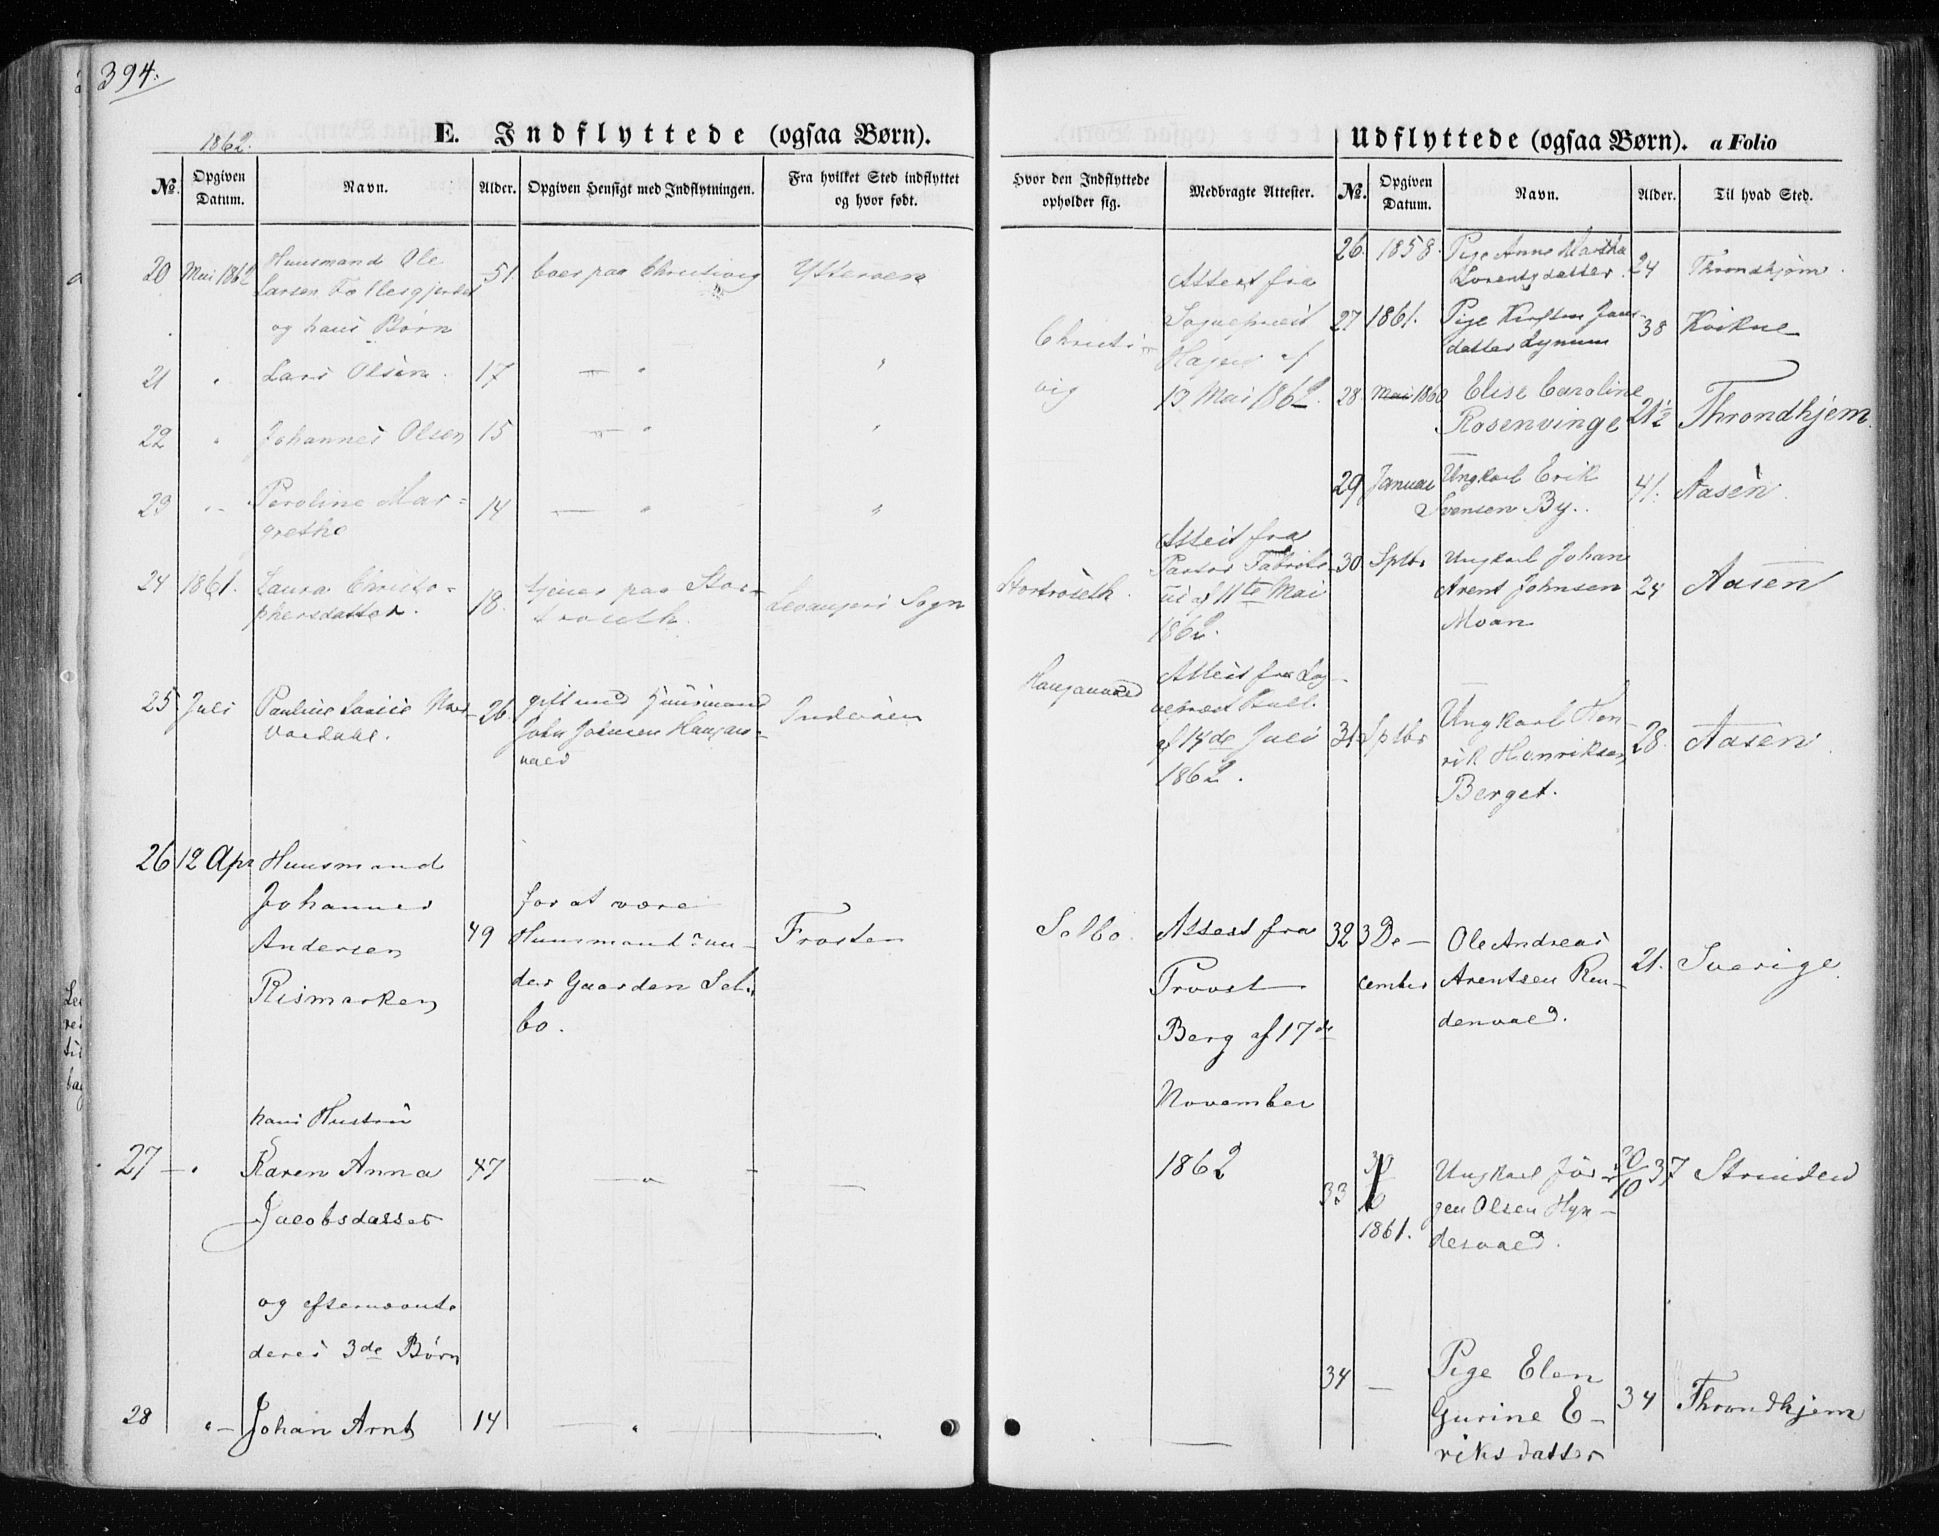 394.
1862.
E. Indflyttede (ogsaa Børn).
No. Opgiven Datum. Navn. Alder. Opgiven Hensigt med Indflytningen. Fra hvilket Sted indflyttet og hvor født.
20 Mai 1862 Huusmand Ole 51. boer paa Christivig Ytterøen
Larsen
og hans Børn
21 " Lars Olsen. 17 — " "
22 " Johannes Olsen 15 — " "
23 " Peroline Mar=
grethe 14 — " "
24 1861. Laura Christo=
phersdatter. 18. tjener paa Stor=
troseth. Levangers Sogn
25 Juli Pauline
Vordahl. 26 gift med Huusmand
John Johnsen Haugan=
vald Inderøen
26 12 Apr Huusmand
Johannes
Andersen
Rismarken 49 for at være
Huusmand un=
der Gaarden Sel=
bo. Frosten
hans Hustru
27 — " Karen Anna 47 — " —
Jacobsdatter
og efternævnte
deres 3de Børn
28 " — Johan Arnt 14 — " —
Udflyttede (ogsaa Børn). a Folio
Hvor den Indflyttede opholder sig. Medbragte Attester. No. Opgiven Datum. Navn. Alder. Til hvad Sted.
Christi=
vig
Attest fra
Sognepræst
af
13 Mai 1862.
Stortroseth.
Attest fra
Pastor
af 11te Mai
1862.
Attest fra Sog=
nepræst Bull
af 14de Juli
1862.
Selbo. Attest fra
Provst
Berg af 17de
November
1862
26. 1858. Pige Anne Martha
Lorentsdatter 24 Throndhjem.
27 1861. Pige Kirsten Jens=
datter Lynum 38 Kvikne
28. Mai 1860 Elise Caroline
Rosenvinge 21½ Throndhjem.
29 Januar Ungkarl Erik
Svensen By. 41. Aasen.
30 Sptbr Ungkarl Johan
Arent Johnsen
Moan 24 Aasen
31 Sptbr Ungkarl Hen=
rik Henriksen
Berget. 28. Aasen
32 3 De—
cember Ole Andreas
Arentsen Rin=
denvald. 21. Sverige.
33
1861. Ungkarl Jör=
gen Olsen Hyn=
desvald. 30/10 37 Strinden
34 — Pige Elen
Gurine E=
riksdatter 34 Throndhjem